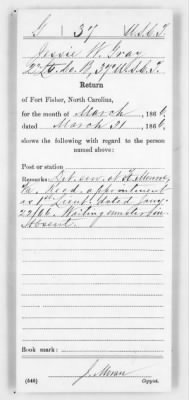 G | 37 | U.S.C.T.
Jessie W. Gray
2 Lt. Co. B, 37 U.S.C.T.
Return
of Fort Fisher, North Carolina,
for the month of March, 1866,
dated March 31, 1866,
shows the following with regard to the person
named above:
Post or station
Remarks: Det. serv. at Ft. Monroe,
Va. Recd. appointment
as 1st Lieut. dated Jany.
22/66. Waiting muster
Absent.
Book mark:
(546)
Copyist.